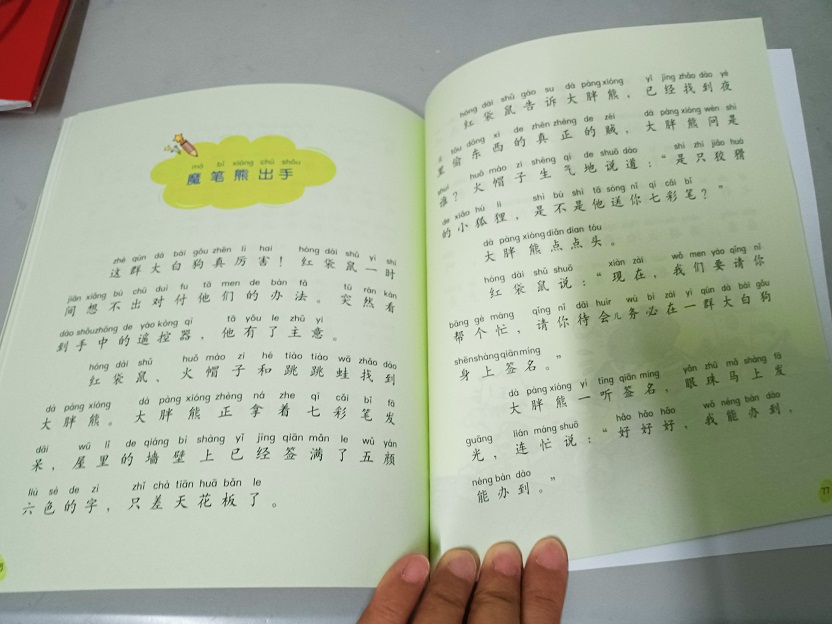 mó bǐ xióng chū shǒu
魔笔熊出手
zhè qún dà bái gǒu zhēn lì hai hóng dài shǔ yì shí
这群大白狗真厉害！红袋鼠一时
jiān xiǎng bù chū duì fu tā men de bàn fǎ tū rán kàn
间想不出对付他们的办法。突然看
dào shǒu zhōng de yáo kòng qì tā yǒu le zhǔ yi
到手中的遥控器，他有了主意。
hóng dài shǔ huǒ mào zi hé tiào tiào wā zhǎo dào
红袋鼠、火帽子和跳跳蛙找到
dà pàng xióng dà pàng xióng zhèng ná zhe qī cǎi bǐ fā
大胖熊。大胖熊正拿着七彩笔发
dāi wū lǐ de qiáng bì shàng yǐ jīng qiān mǎn le wǔ yán
呆，屋里的墙壁上已经签满了五颜
liù sè de zì zhǐ chà tiān huā bǎn le
六色的字，只差天花板了。
hóng dài shǔ gào su dà pàng xióng yǐ jīng zhǎo dào yè
红袋鼠告诉大胖熊，已经找到夜
lǐ tōu dōng xi de zhēn zhèng de zéi dà pàng xióng wèn shì
里偷东西的真正的贼，大胖熊问是
shuí huǒ mào zi shēng qì de shuō dào shì zhī jiǎo huá
谁？火帽子生气地说道：“是只狡猾
de xiǎo hú li shì bú shì tā sòng nǐ qī cǎi bǐ
的小狐狸，是不是他送你七彩笔？”
dà pàng xióng diǎn diǎn tóu
大胖熊点点头。
hóng dài shǔ shuō xiàn zài wǒ men yào qǐng nǐ
红袋鼠说：“现在，我们要请你
bāng gè máng qǐng nǐ dāi huìr wù bì zài yì qún dà bái gǒu
帮个忙，请你待会儿务必在一群大白狗
shēn shàng qiān míng
身上签名。”
dà pàng xióng yì tīng qiān míng yǎn zhū mǎ shàng fā
大胖熊一听签名，眼珠马上发
guāng lián máng shuō hǎo hǎo hǎo wǒ néng bàn dào
光，连忙说：“好好好，我能办到，
néng bàn dào
能办到。”
77